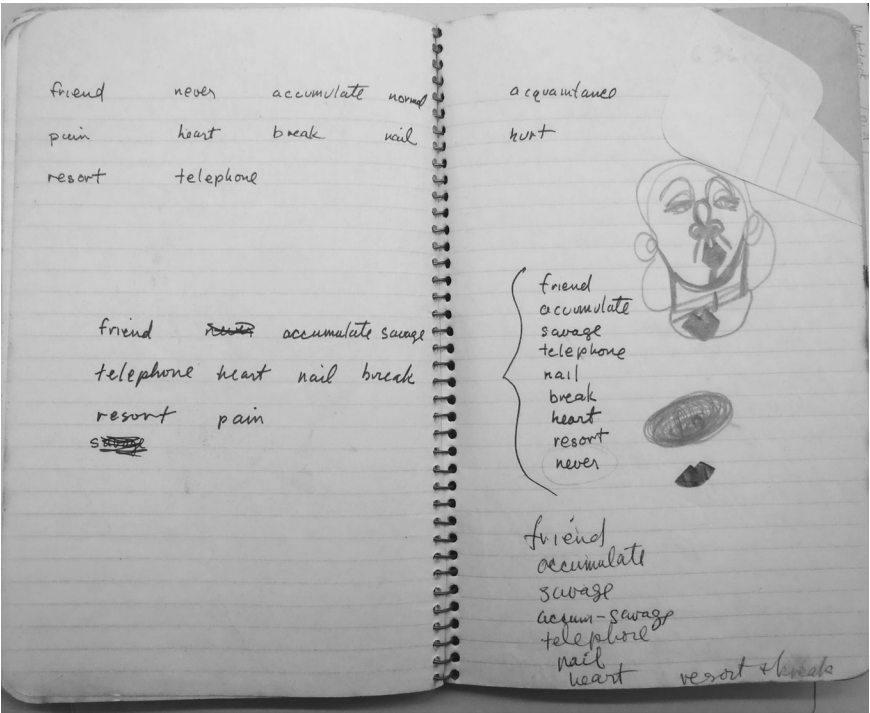 friend never accumulate normal
pain heart break nail
resort telephone
friend never accumulate savage
telephone heart nail break
resort pain
savage
acquaintance
hurt
friend
accumulate
savage
telephone
nail
break
heart
resort
never
friend
accumulate
savage
accum-savage
telephone
nail
heart resort + break